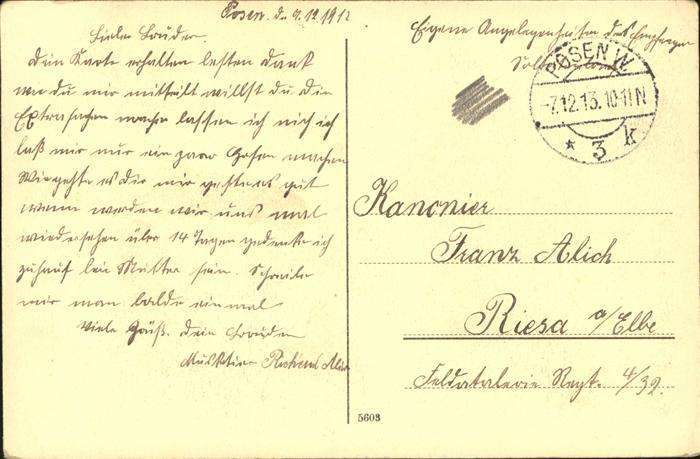 Posen, d. 7.12.1913
Lieber Bruder.
Dein Karte erhalten besten Dank
wie du mir mitteilst willst du die
Extrasachen machen lassen ich nich ich
laß mir nur ein paar Hosen machen
Wie gehts es Dir mir gestens gut
wenn werden wir uns mal
wiedersehen über 14 Tagen gedenke ich
zuhauß bei Mutter sein. Schreibe
mir man balde einmal
Viele Grüß. dein Bruder
Musktier
Eigene Angelegenheiten des Empfänger
POSEN W.
-7.12.13.10-11N
* 3 k
Kanonier
Franz Alich
Riesa a/Elbe
Feldatalerie Regt. 4/32.
5603